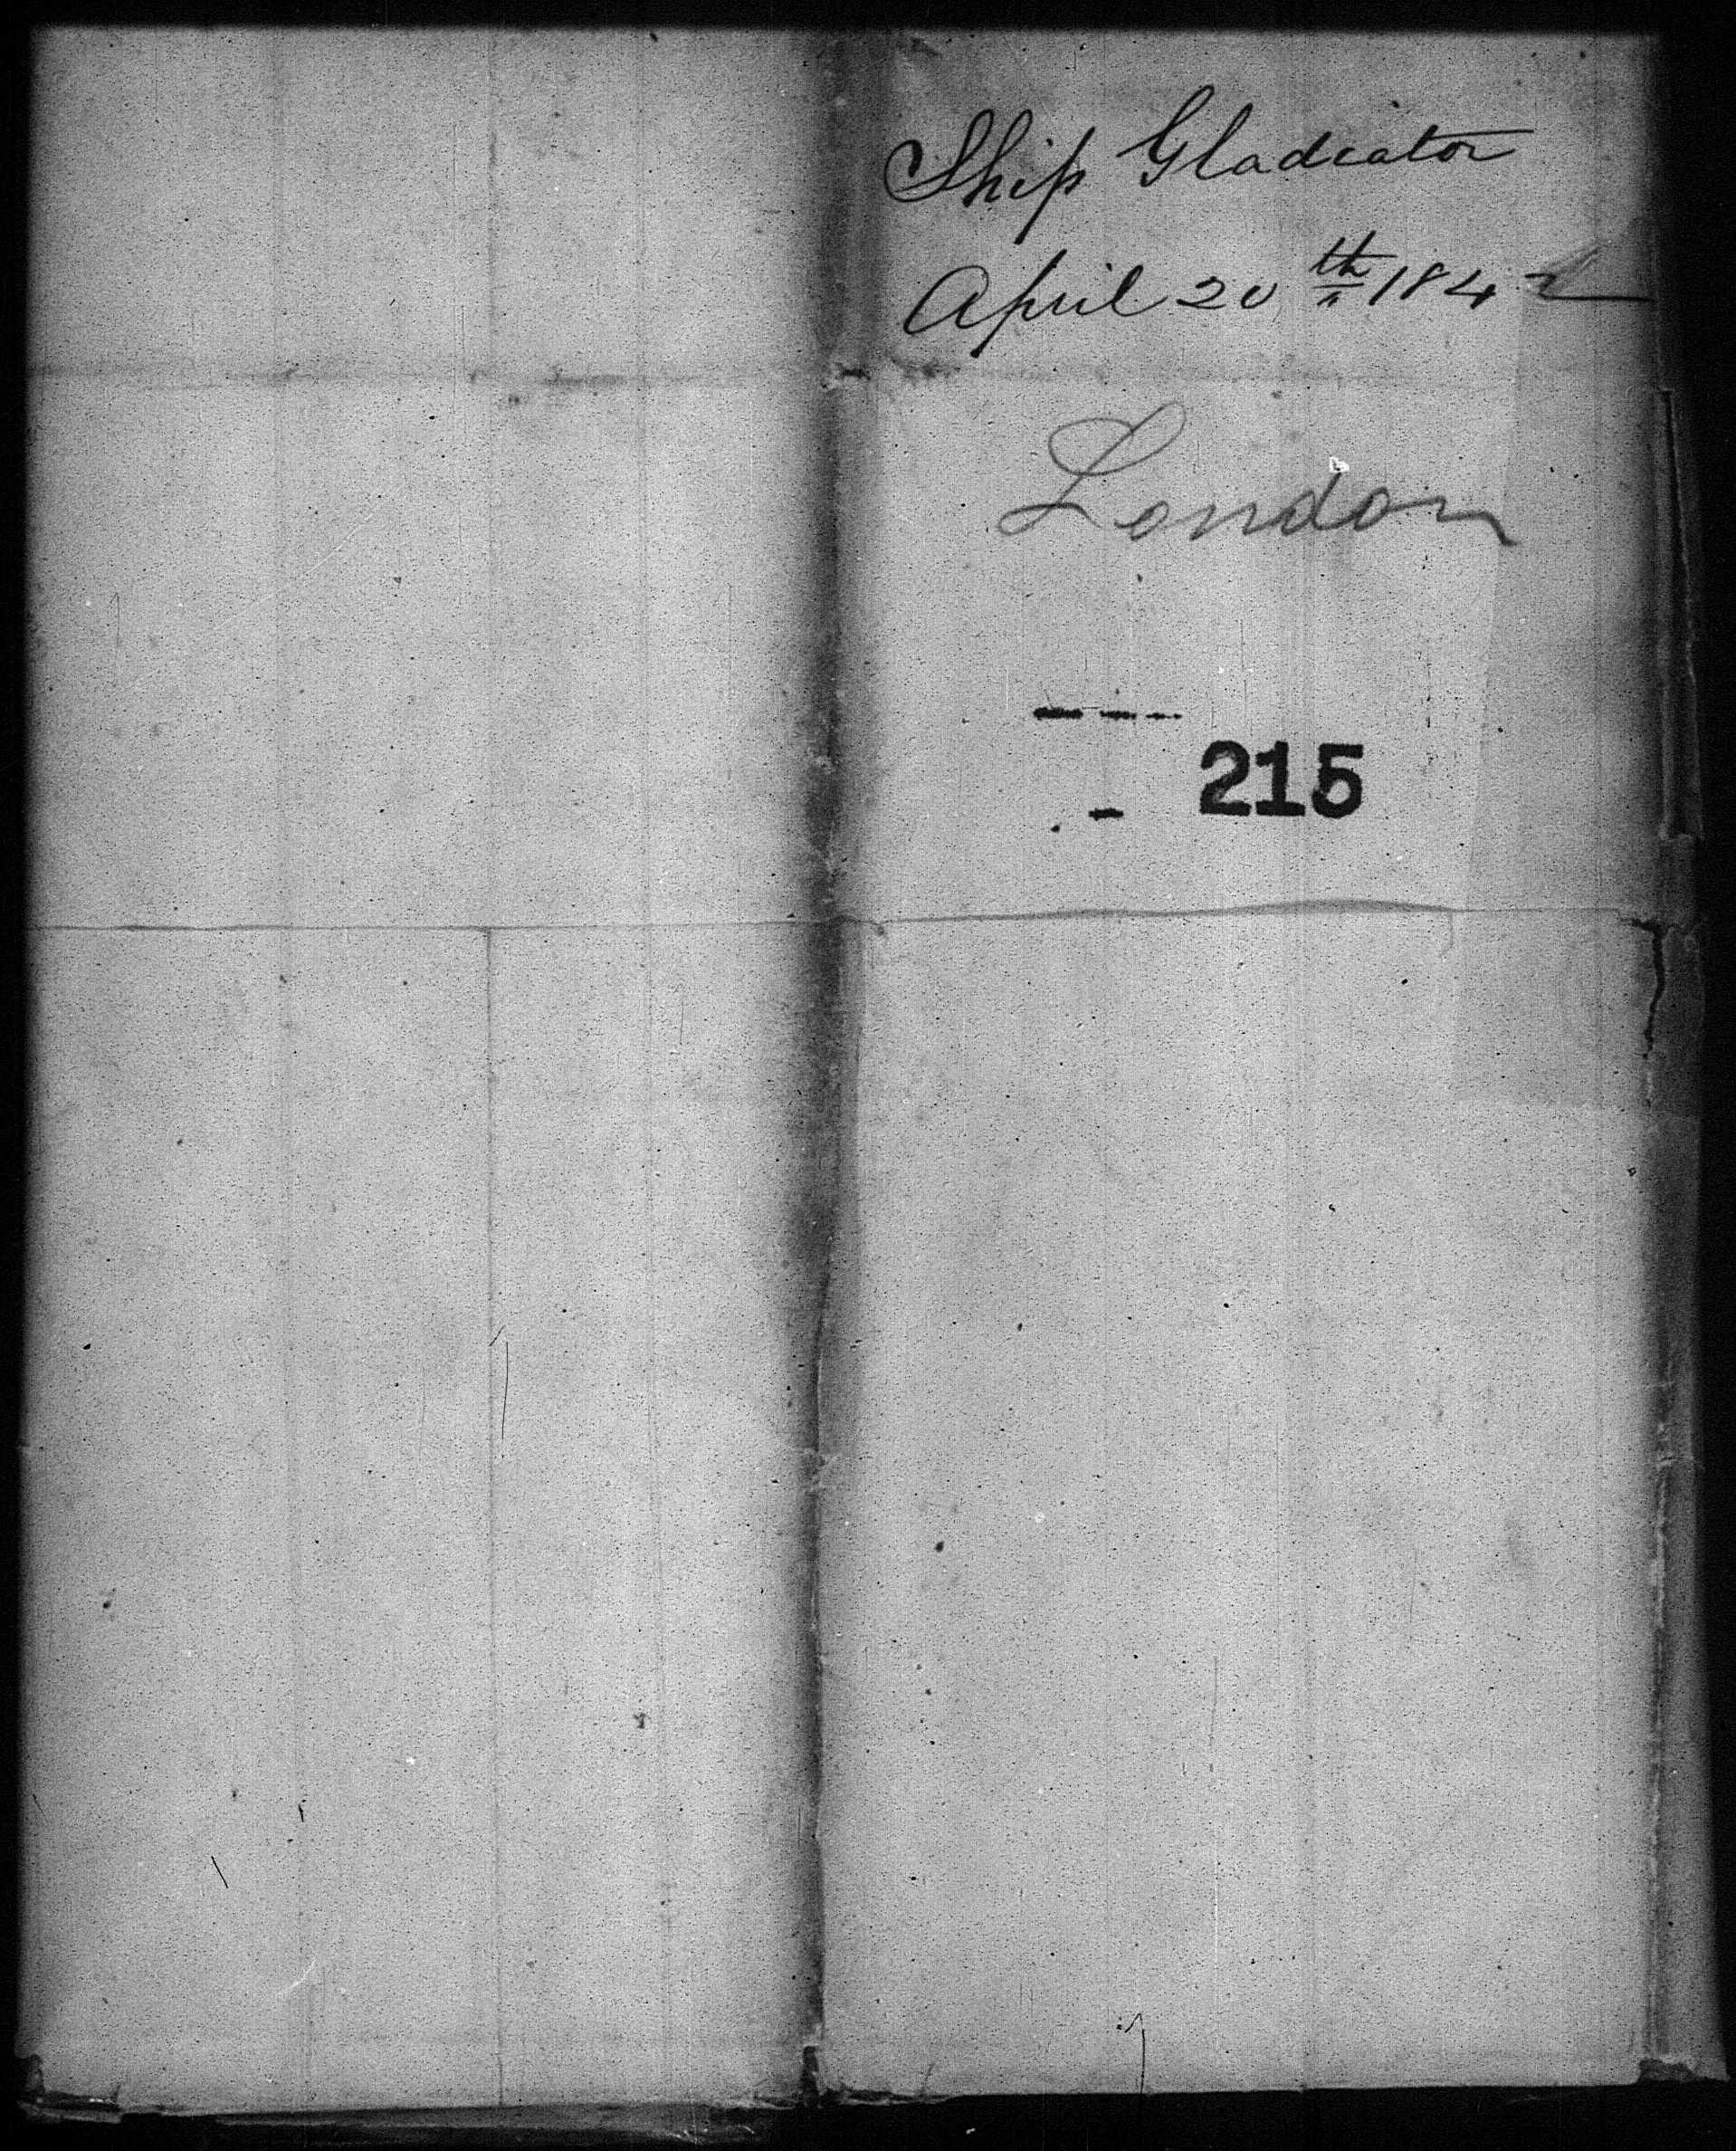 Ship Gladiator
April 20th 1842
London
215